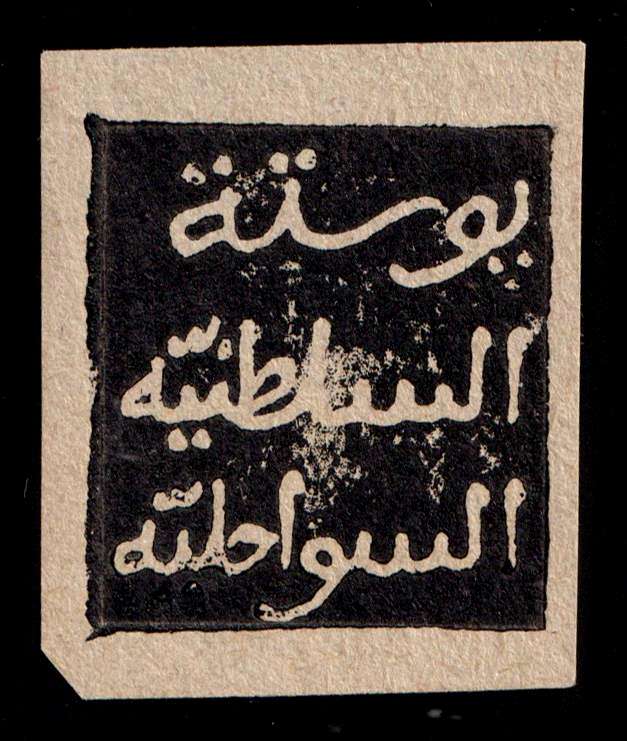 پوستة
السلطنيّة
السواحليّة